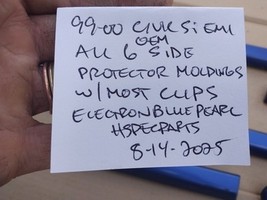 99-00 CIVIC Si EM1
OEM
ALL 6 SIDE
PROTECTOR MOLDINGS
W/MOST CLIPS
ELECTRON BLUE PEARL
HSPECPARTS
8-14-2025